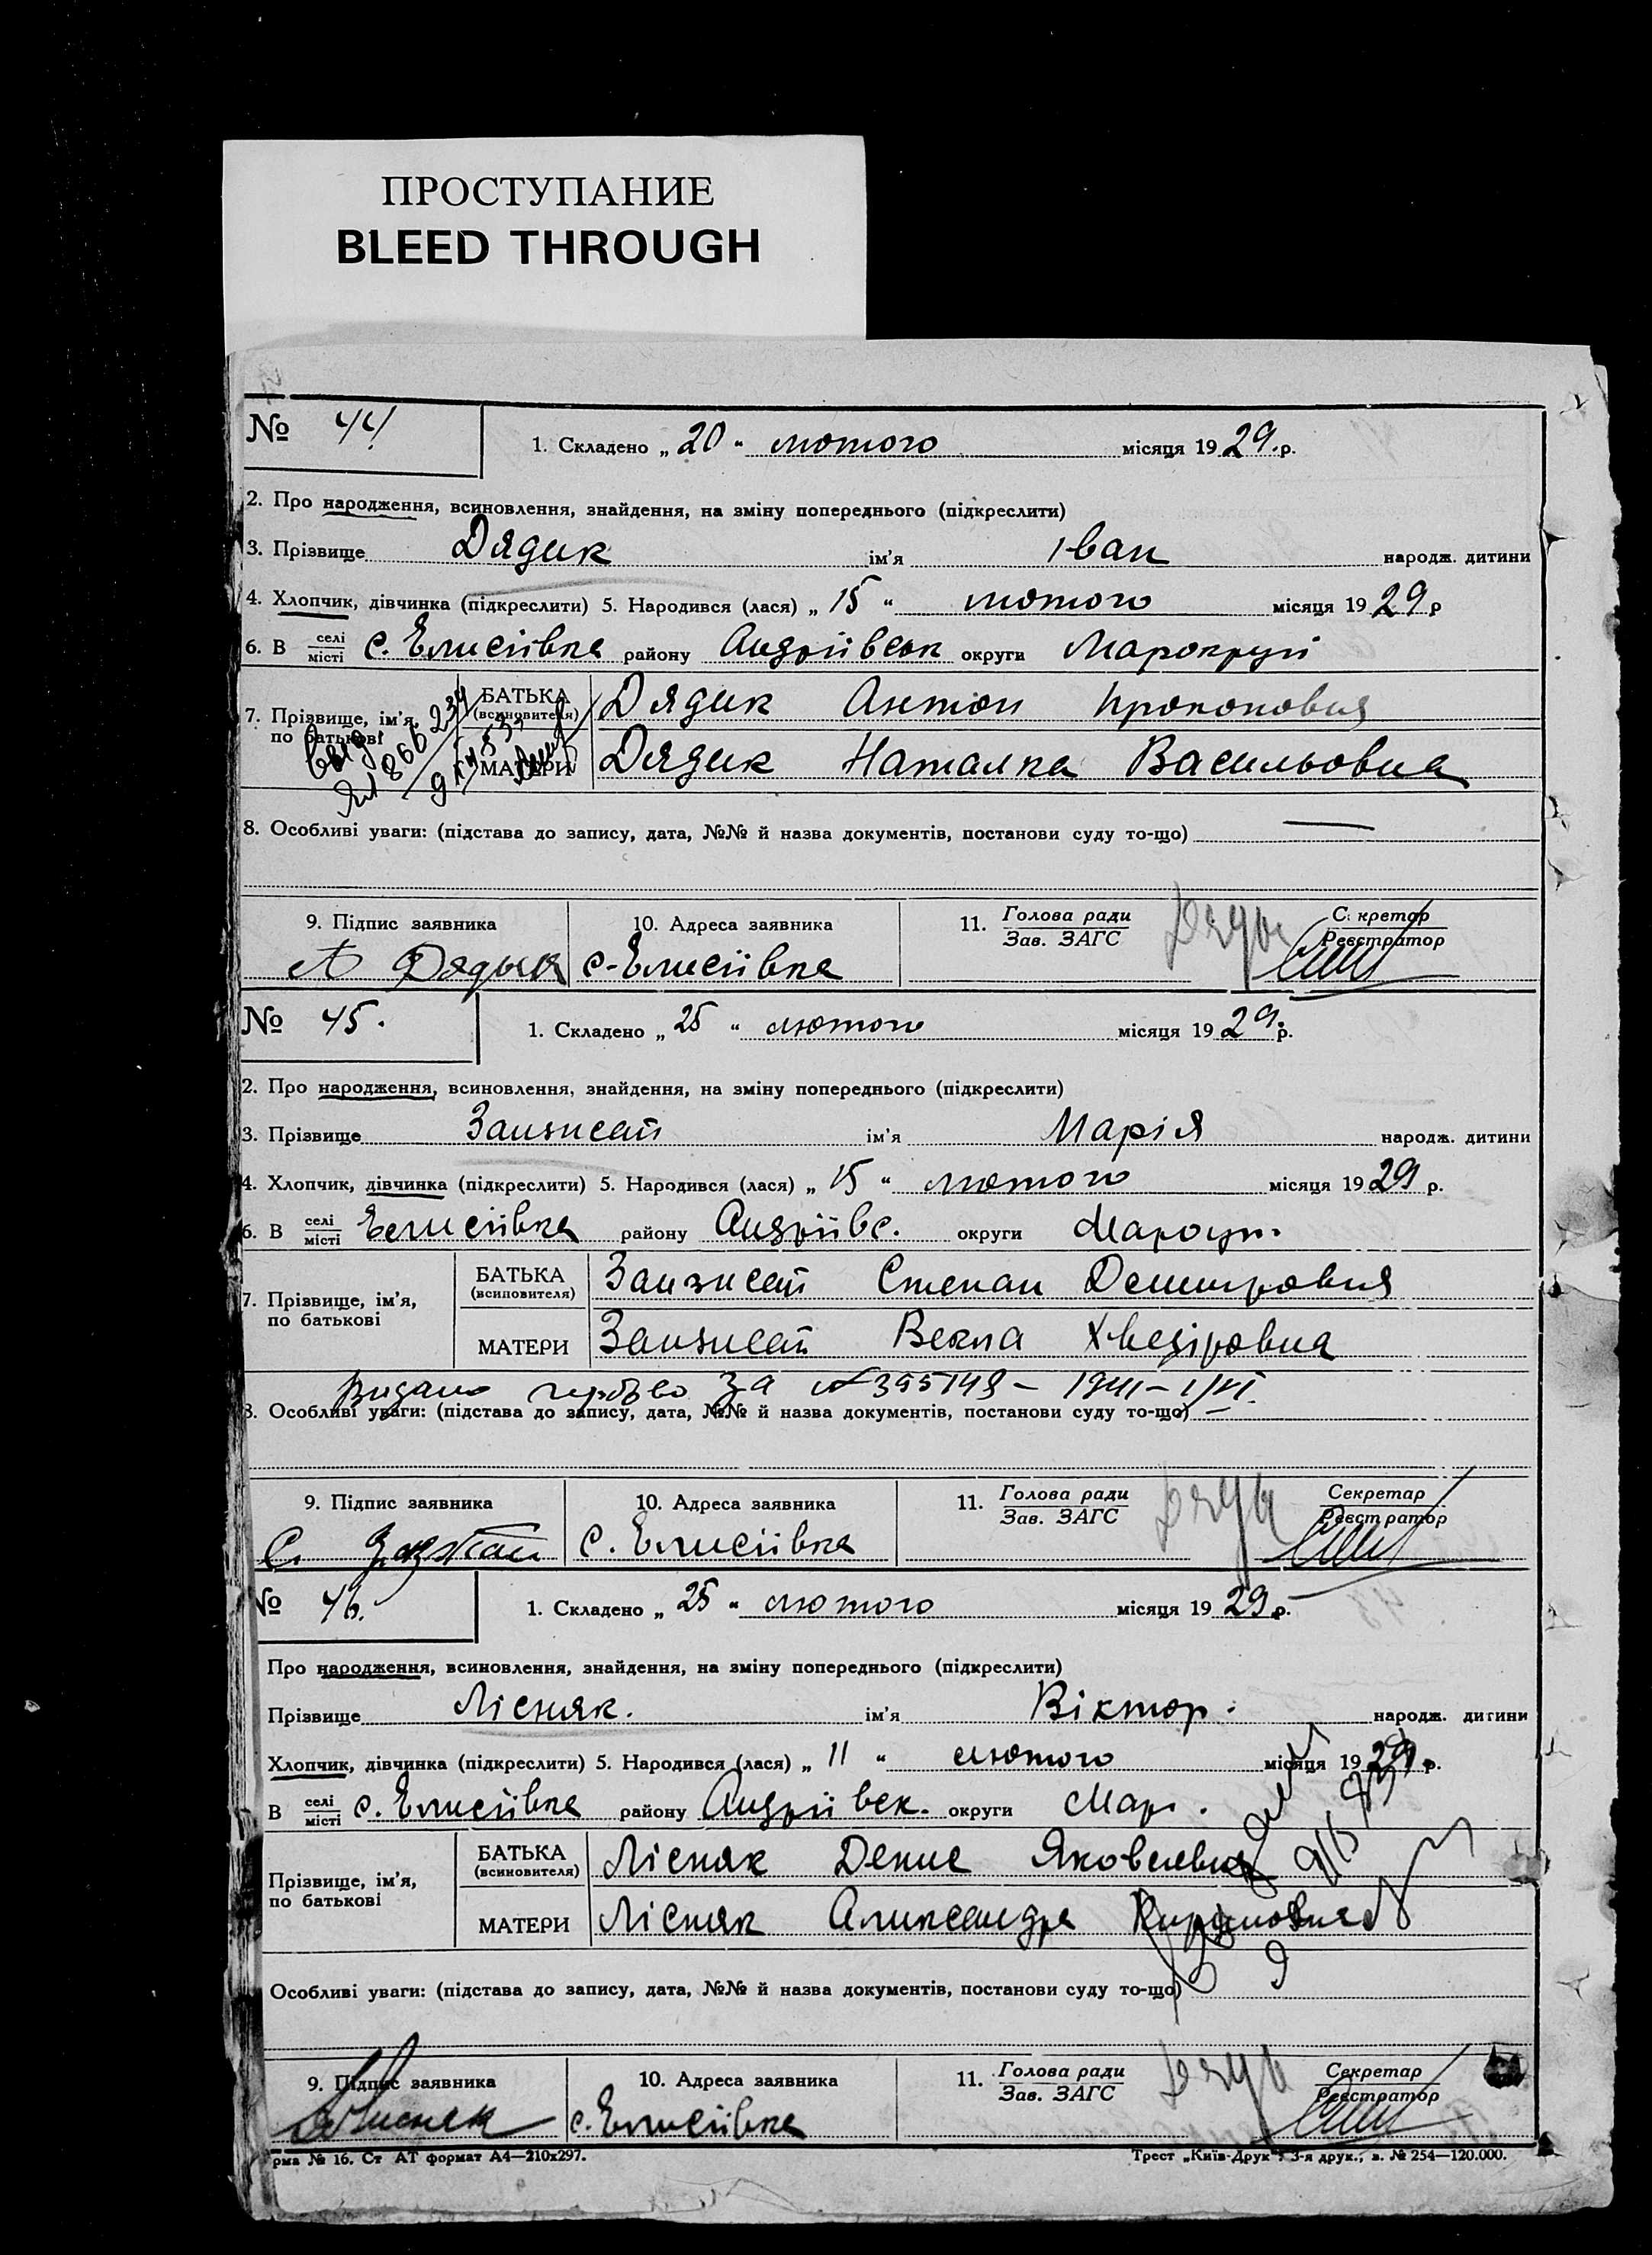 ПРОСТУПАНИЕ
BLEED THROUGH
№ 44
1. Складено „ 20 “ лютого місяця 1929.р.
2. Про народження, всиновлення, знайдення, на зміну попереднього (підкреслити)
3. Прізвище Дядик ім'я Іван народж. дитини
4. Хлопчик, дівчинка (підкреслити) 5. Народився (лася) „ 15 “ лютого місяця 1929 р
6. В селі місті с. Елисіівка району Андріівськ округи Марокруги
7. Прізвище, ім'я, по батькові
БАТЬКА (всиновителя) Дядик Антон Прокопович
МАТЕРИ Дядик Наталка Васильовна
8. Особливі уваги: (підстава до запису, дата, №№ й назва документів, постанови суду то-що) —
9. Підпис заявника 10. Адреса заявника 11. Голова ради Зав. ЗАГС Секретар Реєстратор
А Дядык с-Елисіівка
№ 45.
1. Складено „ 25 “ лютого місяця 1929.р.
2. Про народження, всиновлення, знайдення, на зміну попереднього (підкреслити)
3. Прізвище ім'я Марія народж. дитини
4. Хлопчик, дівчинка (підкреслити) 5. Народився (лася) „ 15 “ лютого місяця 1929 р.
6. В селі місті Елисіівка району Андріівс. округи
7. Прізвище, ім'я, по батькові
БАТЬКА (всиновителя) Степан
МАТЕРИ Векла Хведіровна
Видано За № 395149 – 1941 –
8. Особливі уваги: (підстава до запису, дата, №№ й назва документів, постанови суду то-що) —
9. Підпис заявника 10. Адреса заявника 11. Голова ради Зав. ЗАГС Секретар Реєстратор
С. с. Елисіівка
№ 46.
1. Складено „ 25 “ лютого місяця 1929 р.
Про народження, всиновлення, знайдення, на зміну попереднього (підкреслити)
Прізвище Лісняк. ім'я Віктор. народж. дитини
Хлопчик, дівчинка (підкреслити) 5. Народився (лася) „ 11 “ лютого місяця 1929 р.
В селі місті с. Елисіівка району Андріівск. округи Мар.
Прізвище, ім'я, по батькові
БАТЬКА (всиновителя) Лісняк Денис Яковлевич
МАТЕРИ Лісняк Александра
Особливі уваги: (підстава до запису, дата, №№ й назва документів, постанови суду то-що)
9. Підпис заявника 10. Адреса заявника 11. Голова ради Зав. ЗАГС Секретар Реєстратор
Лисняк с. Елисіівка
рма № 16. Ст АТ формат А4—210х297. Трест „Київ-Друк“ 3-я друк., в. № 254—120.000.